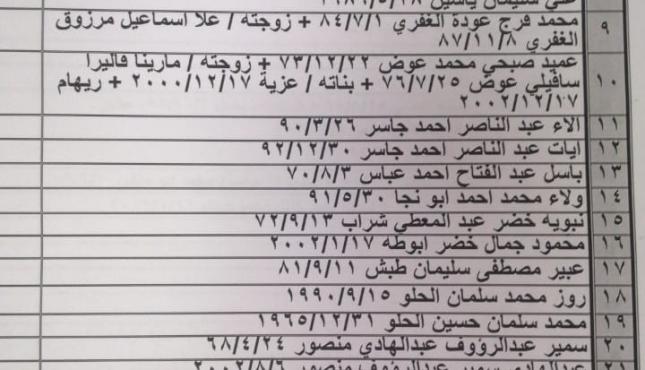 علي سليمان ياسين ١٩٨٩/٥/١٨
٩ محمد فرج عودة الغفري ٨٤/٧/١ + زوجته / علا اسماعيل مرزوق
الغفري ٨٧/١١/٨
عميد صبحي محمد عوض ٧٣/١٢/٢٢ + زوجته / مارينا فاليرا
١٠ سافيلي عوض ٧٦/٧/٢٥ + بناته / عزية ٢٠٠٠/١٢/١٧ + ريهام
٢٠٠٢/١٢/١٧
١١ الاء عبد الناصر احمد جاسر ٩٠/٣/٢٦
١٢ ايات عبد الناصر احمد جاسر ٩٢/١٢/٣٠
١٣ باسل عبد الفتاح احمد عباس ٧٠/٨/٣
١٤ ولاء محمد احمد ابو نجا ٩١/٥/٣٠
١٥ نبويه خضر عبد المعطي شراب ٧٢/٩/١٣
١٦ محمود جمال خضر ابوطه ٢٠٠٢/١/١٧
١٧ عبير مصطفى سليمان طبش ٨١/٩/١١
١٨ روز محمد سلمان الحلو ١٩٩٠/٩/١٥
١٩ محمد سلمان حسين الحلو ١٩٦٥/١٢/٣١
٢٠ سمير عبدالرؤوف عبدالهادي منصور ٦٨/٤/٢٤
٢١ عبدالهادي سمير عبدالرؤوف منصور ٢٠٠٢/٨/٦